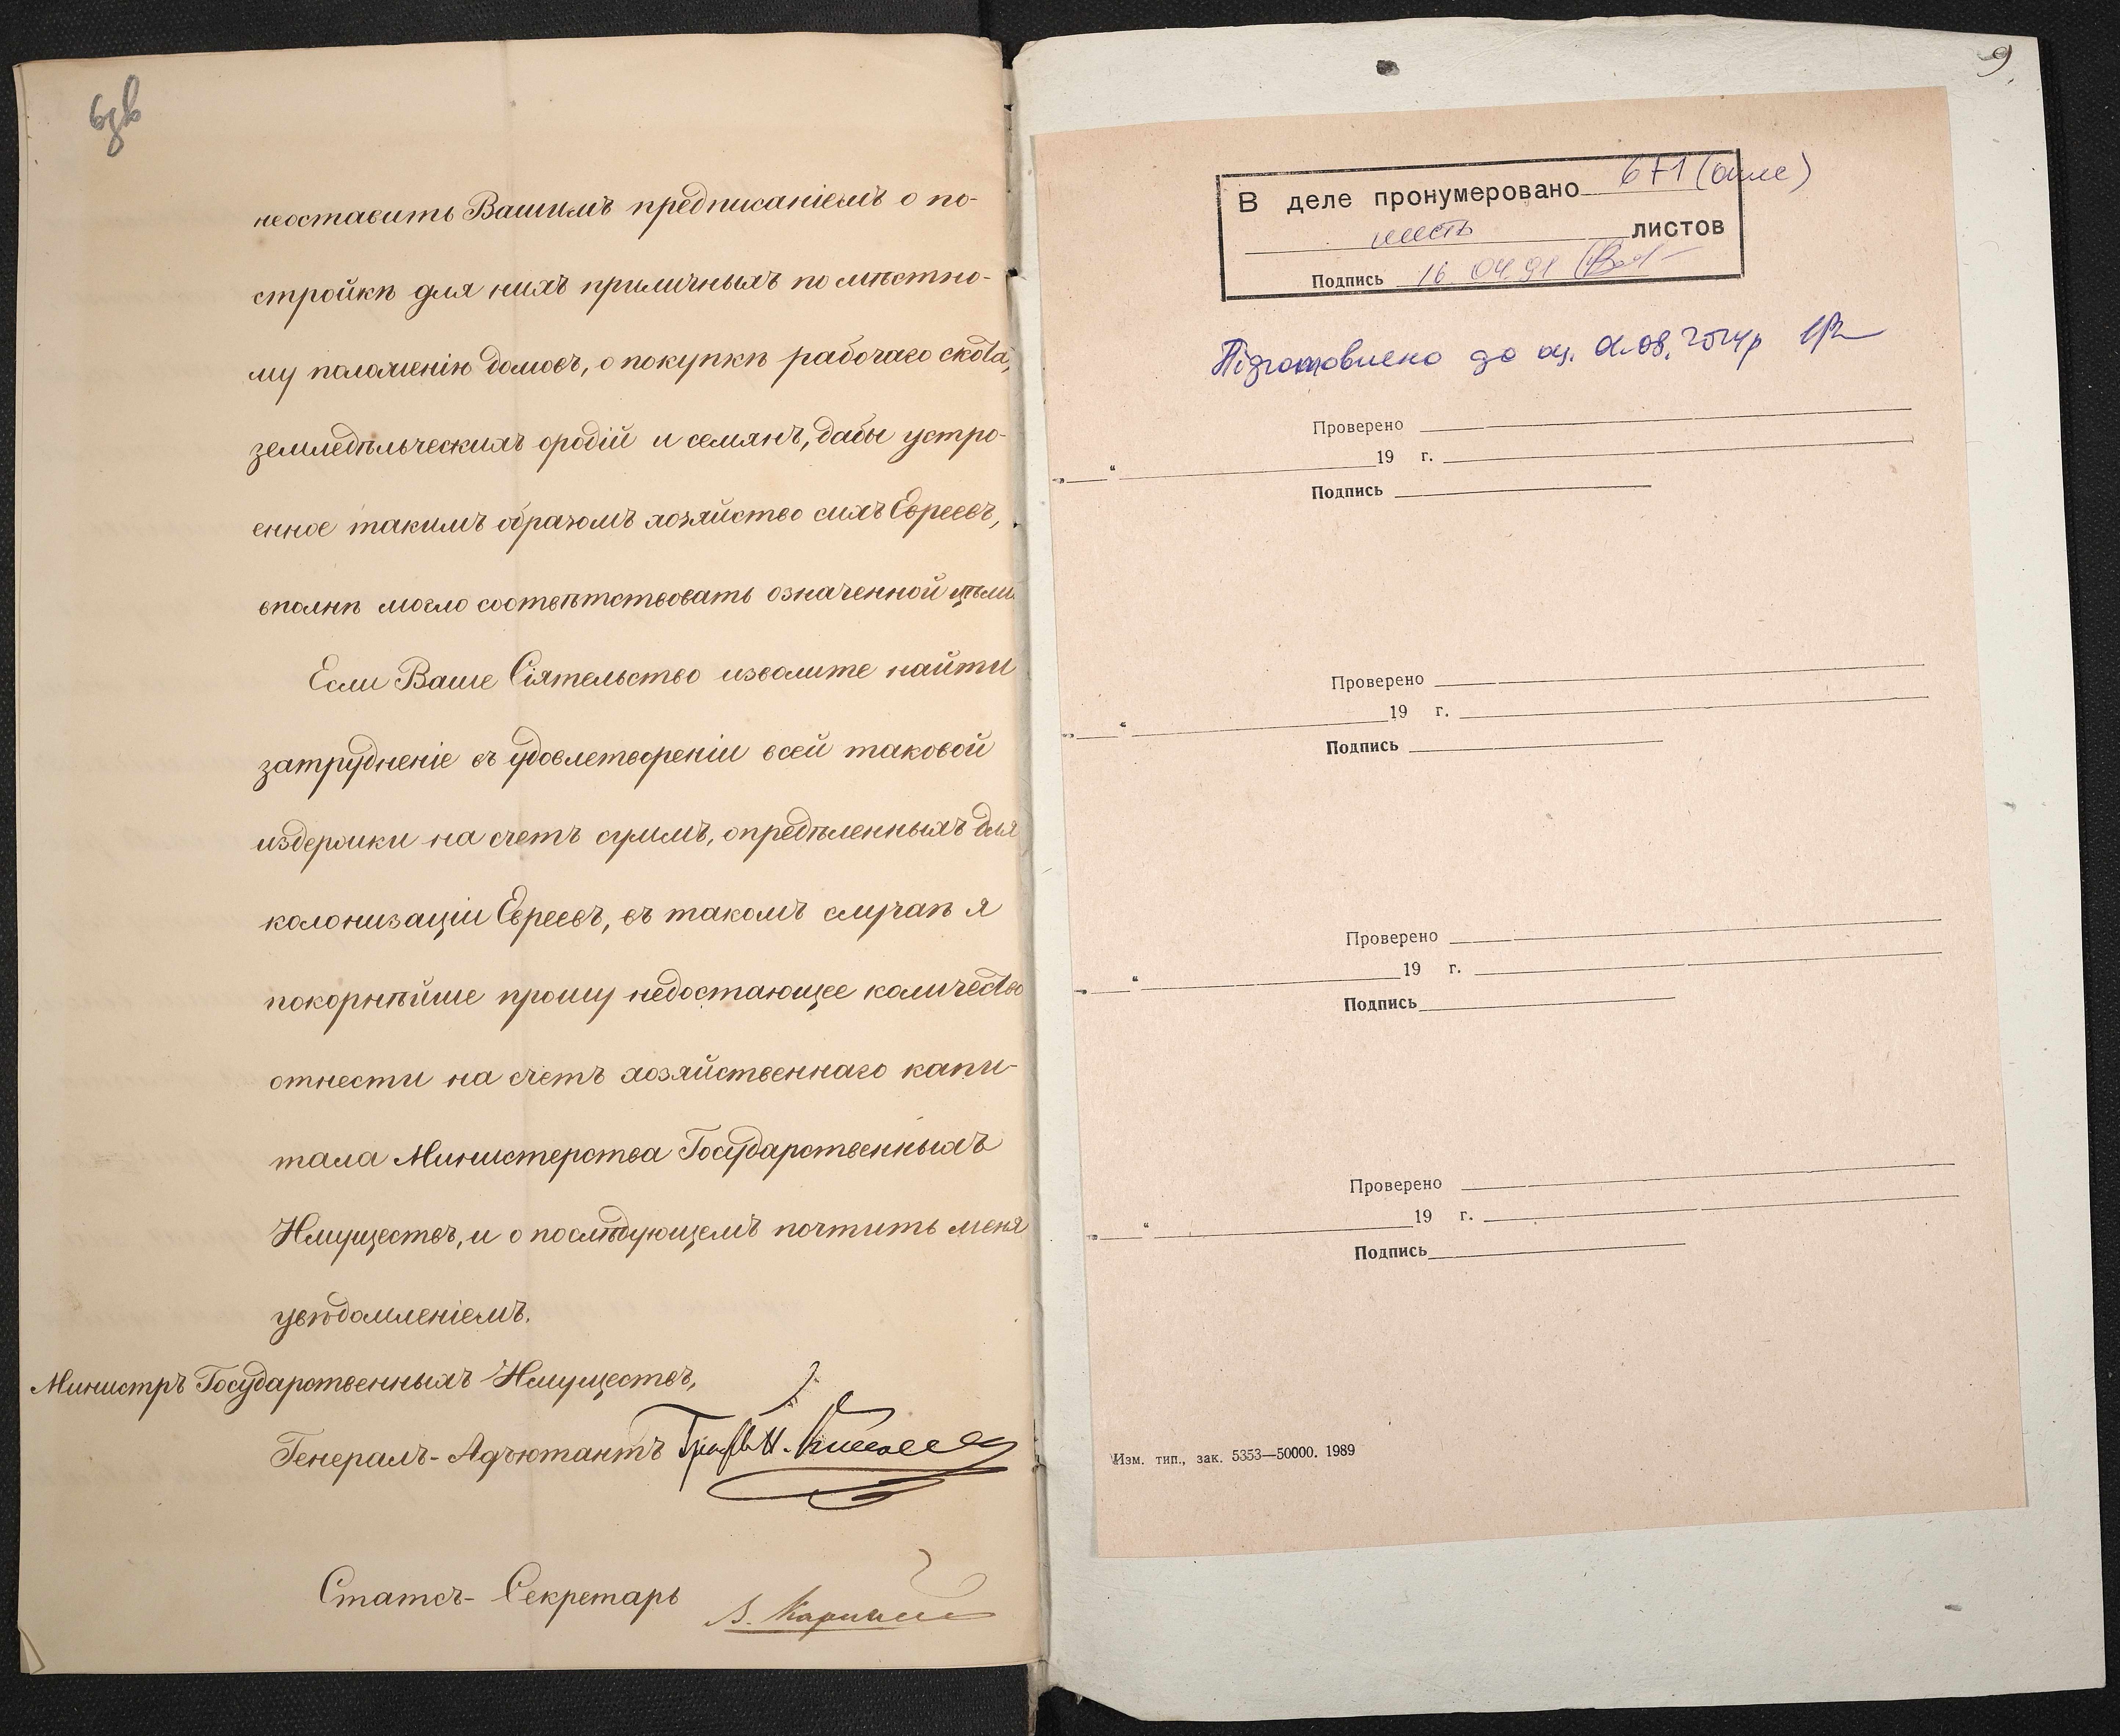 неоставить Вашимъ предписаніемъ о по-
стройкѣ для нихъ приличныхъ по мѣстно-
му положенію домовъ, о покупкѣ рабочаго скота,
земледѣльческихъ орудій и семянъ, дабы устро-
енное такимъ образомъ хозяйство сихъ Евреевъ,
вполнѣ могло соотвѣтствовать означенной цѣли.
Если Ваше Сіятельство изволите найти
затрудненіе въ удовлетвореніи всей таковой
издержки на счетъ суммъ, опредѣленныхъ для
колонизаціи Евреевъ, въ такомъ случаѣ я
покорнѣйше прошу недостающее количество
отнести на счетъ хозяйственнаго капи-
тала Министерства Государственныхъ
Имуществъ, и о послѣдующемъ почтить меня
увѣдомленіемъ.
Министръ Государственныхъ Имуществъ,
Генералъ-Адъютантъ Графъ П. Киселевъ
Статсъ-Секретарь
9
В деле пронумеровано 6+1
шесть листов
Подпись 16.04.91
Підготовлено до оц. 01.08.2014р
Проверено
„ “ 19 г.
Подпись
Проверено
„ “ 19 г.
Подпись
Проверено
„ “ 19 г.
Подпись
Проверено
„ “ 19 г.
Подпись
Изм. тип., зак. 5353—50000. 1989